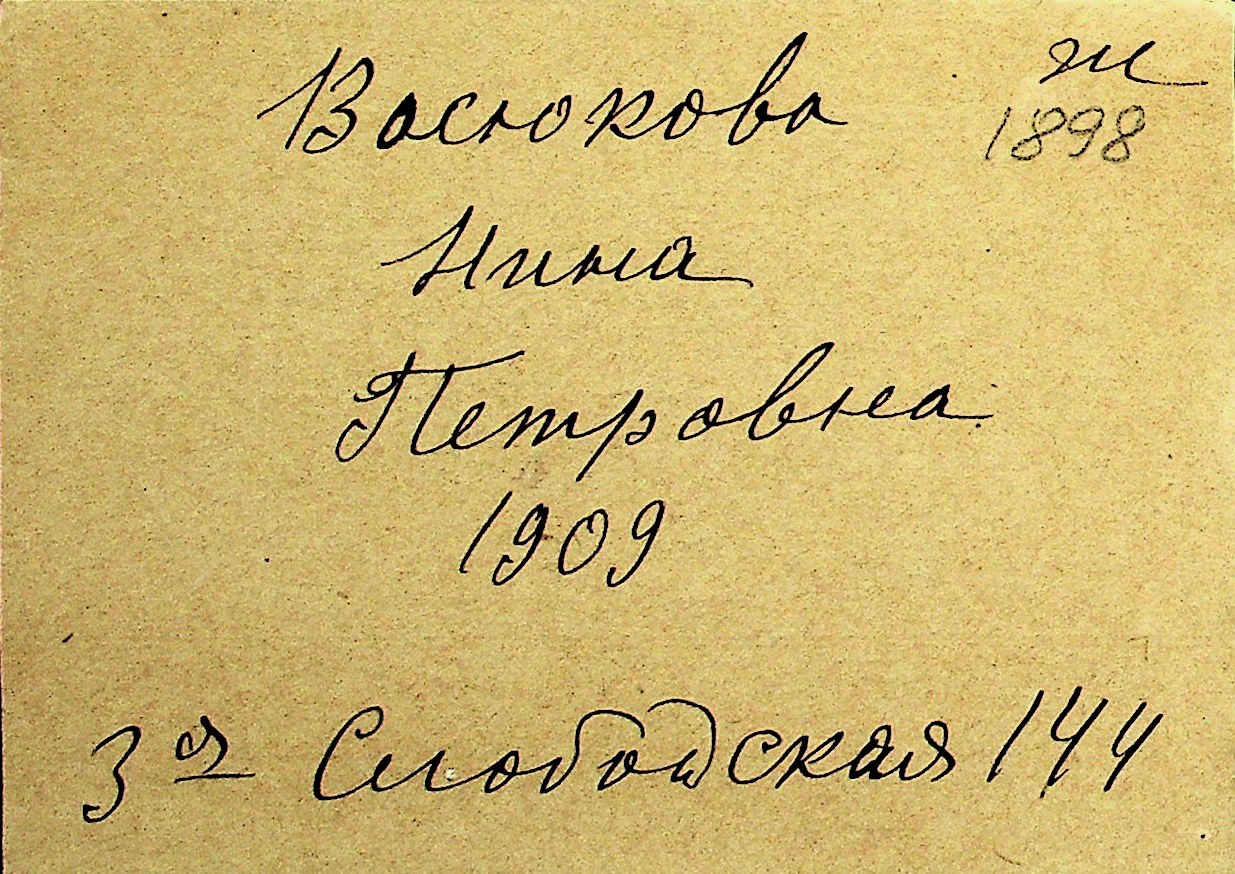 Васюкова ж
1898
Нина
Петровна
1909
3я Слободская 144